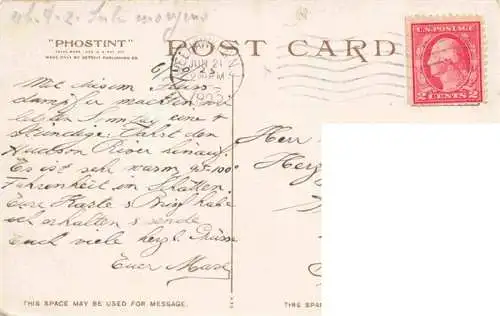 "PHOSTINT"
MADE ONLY BY DETROIT PUBLISHING CO.
POST CARD
JUN 21
1923
U.S. POSTAGE
2 CENTS 2
6/
Mit diesem Fluss
dampfer machten wir
letzten Sonntag eine
stündige Fahrt den
Hudson River hinauf.
Es ist sehr warm 95-100°
Fahrenheit im Schatten.
Eure Karte & Brief habe
ich erhalten & sende
Euch viele herzl. Grüsse
Euer
Herr
Herz
THIS SPACE MAY BE USED FOR MESSAGE.
THIS SPACE